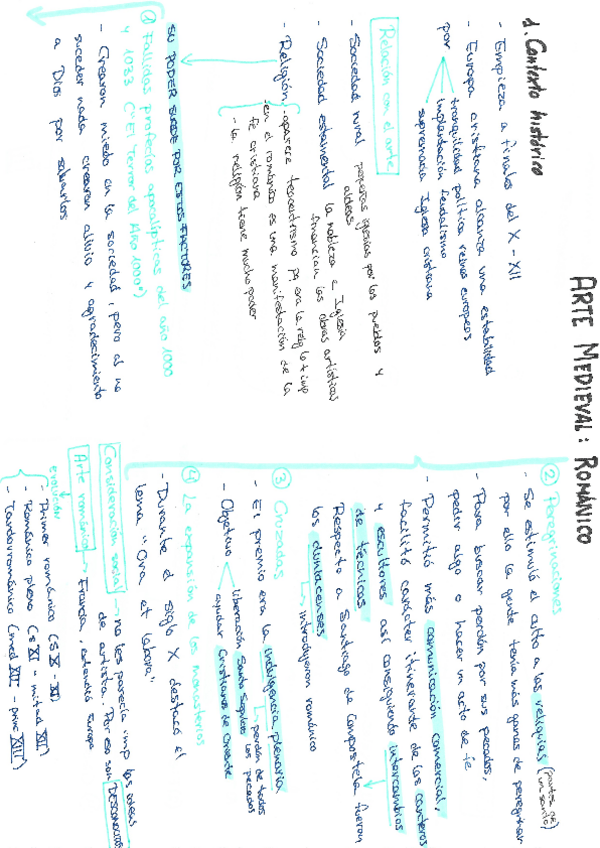 ARTE MEDIEVAL: ROMÁNICO
1. Contexto histórico
- Empieza a finales del X - XII
- Europa cristiana alcanza una estabilidad
por
tranquilidad política reinos europeos
implantación feudalismo
supremacía Iglesia cristiana
Relación con el arte
- Sociedad rural pequeñas iglesias por los pueblos y
aldeas
- Sociedad estamental la nobleza e Iglesia
financian las obras artísticas
- Religión - aparece teocentrismo pq era la relig lo + imp
- en el románico es una manifestación de la
fe cristiana
- la religión tiene mucho poder
SU PODER SUCEDE POR ESTOS FACTORES
① Fallidas profecías apocalípticas del año 1000
y 1033 ("El Terror del Año 1000")
- Crearon miedo en la sociedad, pero al no
suceder nada crearon alivio y agradecimiento
a Dios por salvarlos
② Peregrinaciones
- Se estimuló el culto a las reliquias (partes de
un santo)
por ello la gente tenía más ganas de peregrinar
- Para buscar perdón por sus pecados,
pedir algo o hacer un acto de fe
- Permitió más comunicación comercial,
facilitó carácter itinerante de los canteros
y escultores así consiguiendo intercambios
de técnicas
Respecto a Santiago de Compostela fueron
los cluniacenses
introdujeron románico
③ Cruzadas
- El premio era la indulgencia plenaria
perdón de todos
los pecados
- Objetivo
liberación Santo Sepulcro
ayudar Cristianos de Oriente
④ La expansión de los monasterios
- Durante el siglo X destacó el
lema "Ora et labora"
Consideración social → no les parecía imp las ideas
de artista. Por eso son DESCONOCIDOS
Arte románico → Francia, extendió Europa
evolución
- Primer románico (s X - XI)
- Románico pleno (s XI - mitad XII)
- Tardorrománico (med XII - princ XIII)